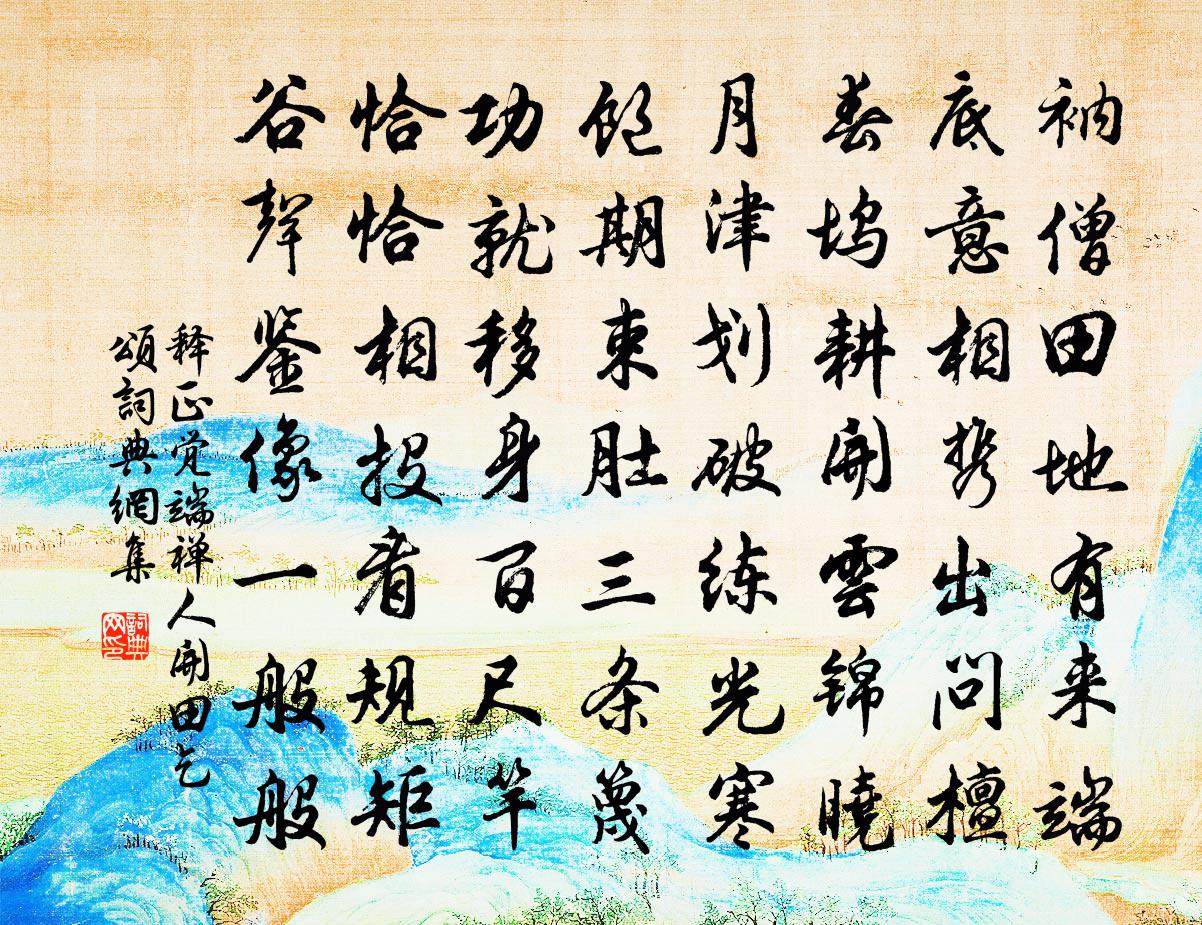 衲僧田地有来端
底意相携出问檀
春坞耕開雲锦曉
月津划破练光寒
饱期束肚三条蔑
功就移身百尺竿
恰恰相投看规矩
谷聲鉴像一般般
释正觉端禅人開田乞
頌詞典網集
詞典
网印